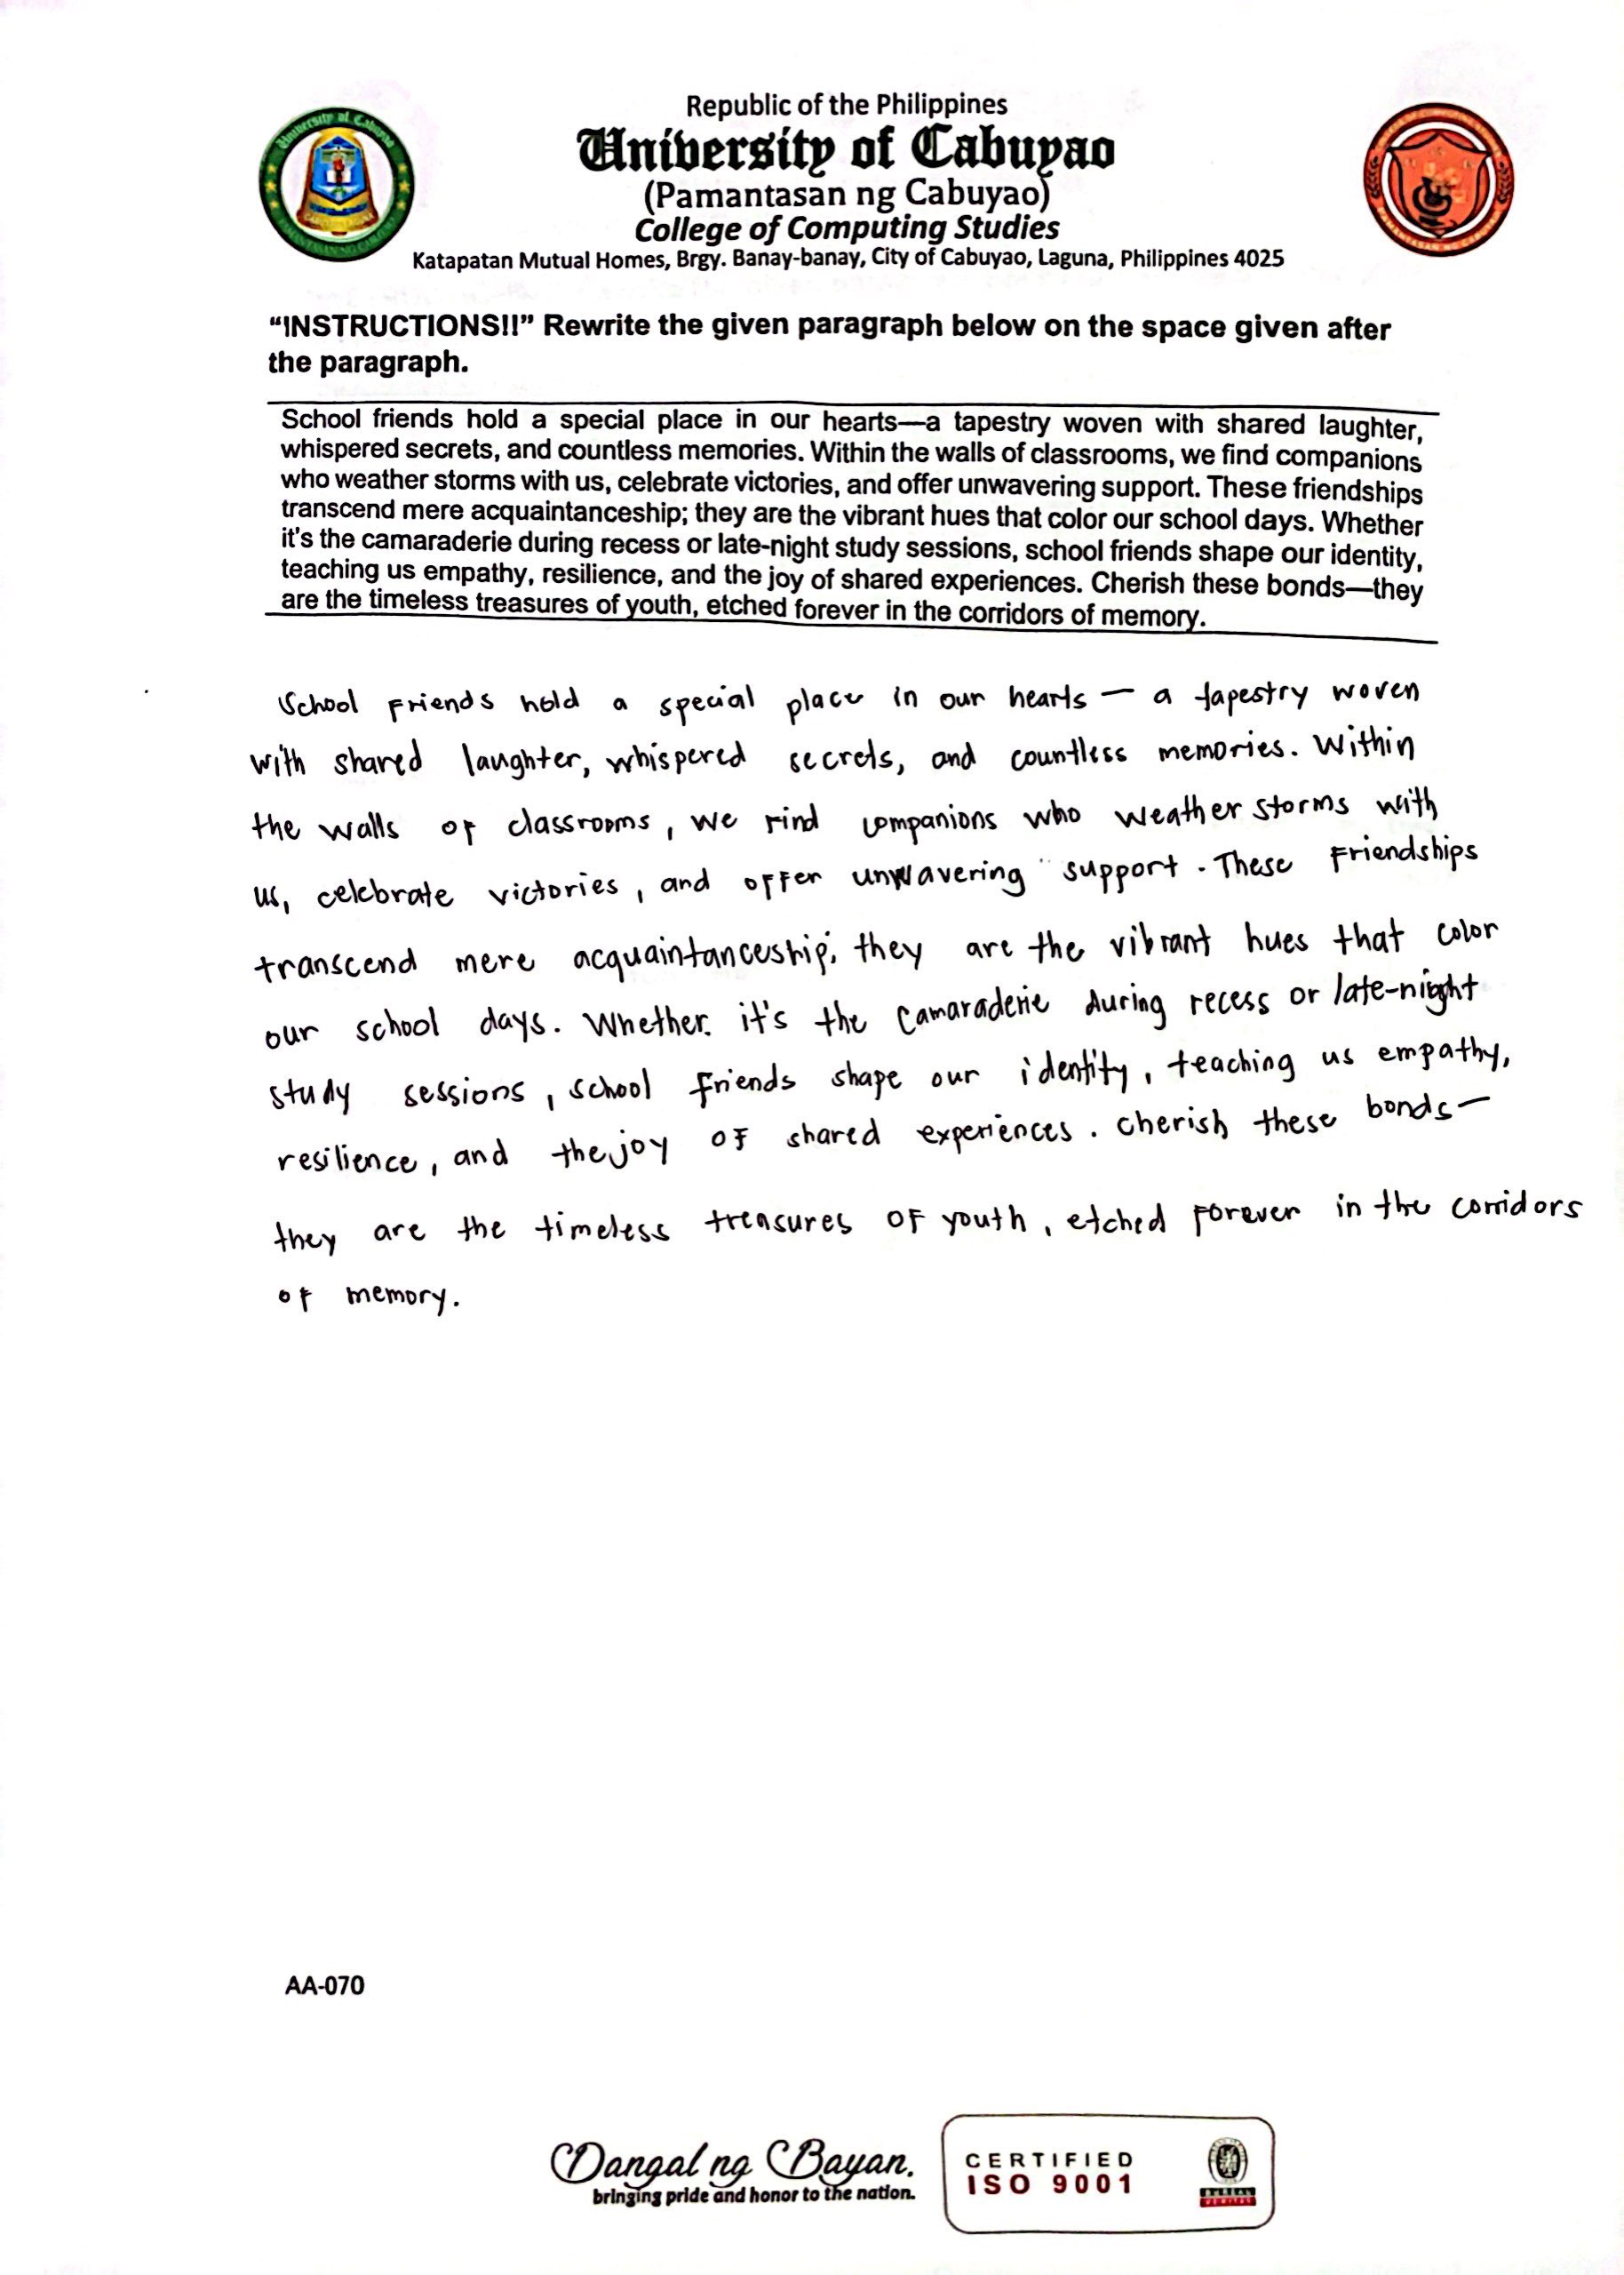 Republic of the Philippines
University of Cabuyao
(Pamantasan ng Cabuyao)
College of Computing Studies
Katapatan Mutual Homes, Brgy. Banay-banay, City of Cabuyao, Laguna, Philippines 4025
“INSTRUCTIONS!!” Rewrite the given paragraph below on the space given after
the paragraph.
School friends hold a special place in our hearts—a tapestry woven with shared laughter,
whispered secrets, and countless memories. Within the walls of classrooms, we find companions
who weather storms with us, celebrate victories, and offer unwavering support. These friendships
transcend mere acquaintanceship; they are the vibrant hues that color our school days. Whether
it's the camaraderie during recess or late-night study sessions, school friends shape our identity,
teaching us empathy, resilience, and the joy of shared experiences. Cherish these bonds—they
are the timeless treasures of youth, etched forever in the corridors of memory.
School friends hold a special place in our hearts — a tapestry woven
with shared laughter, whispered secrets, and countless memories. Within
the walls of classrooms, we find companions who weather storms with
us, celebrate victories, and offer unwavering support. These friendships
transcend mere acquaintanceship; they are the vibrant hues that color
our school days. Whether it's the camaraderie during recess or late-night
study sessions, school friends shape our identity, teaching us empathy,
resilience, and the joy of shared experiences. Cherish these bonds—
they are the timeless treasures of youth, etched forever in the corridors
of memory.
AA-070
Dangal ng Bayan.
bringing pride and honor to the nation.
CERTIFIED
ISO 9001
BUREAU
VERITAS